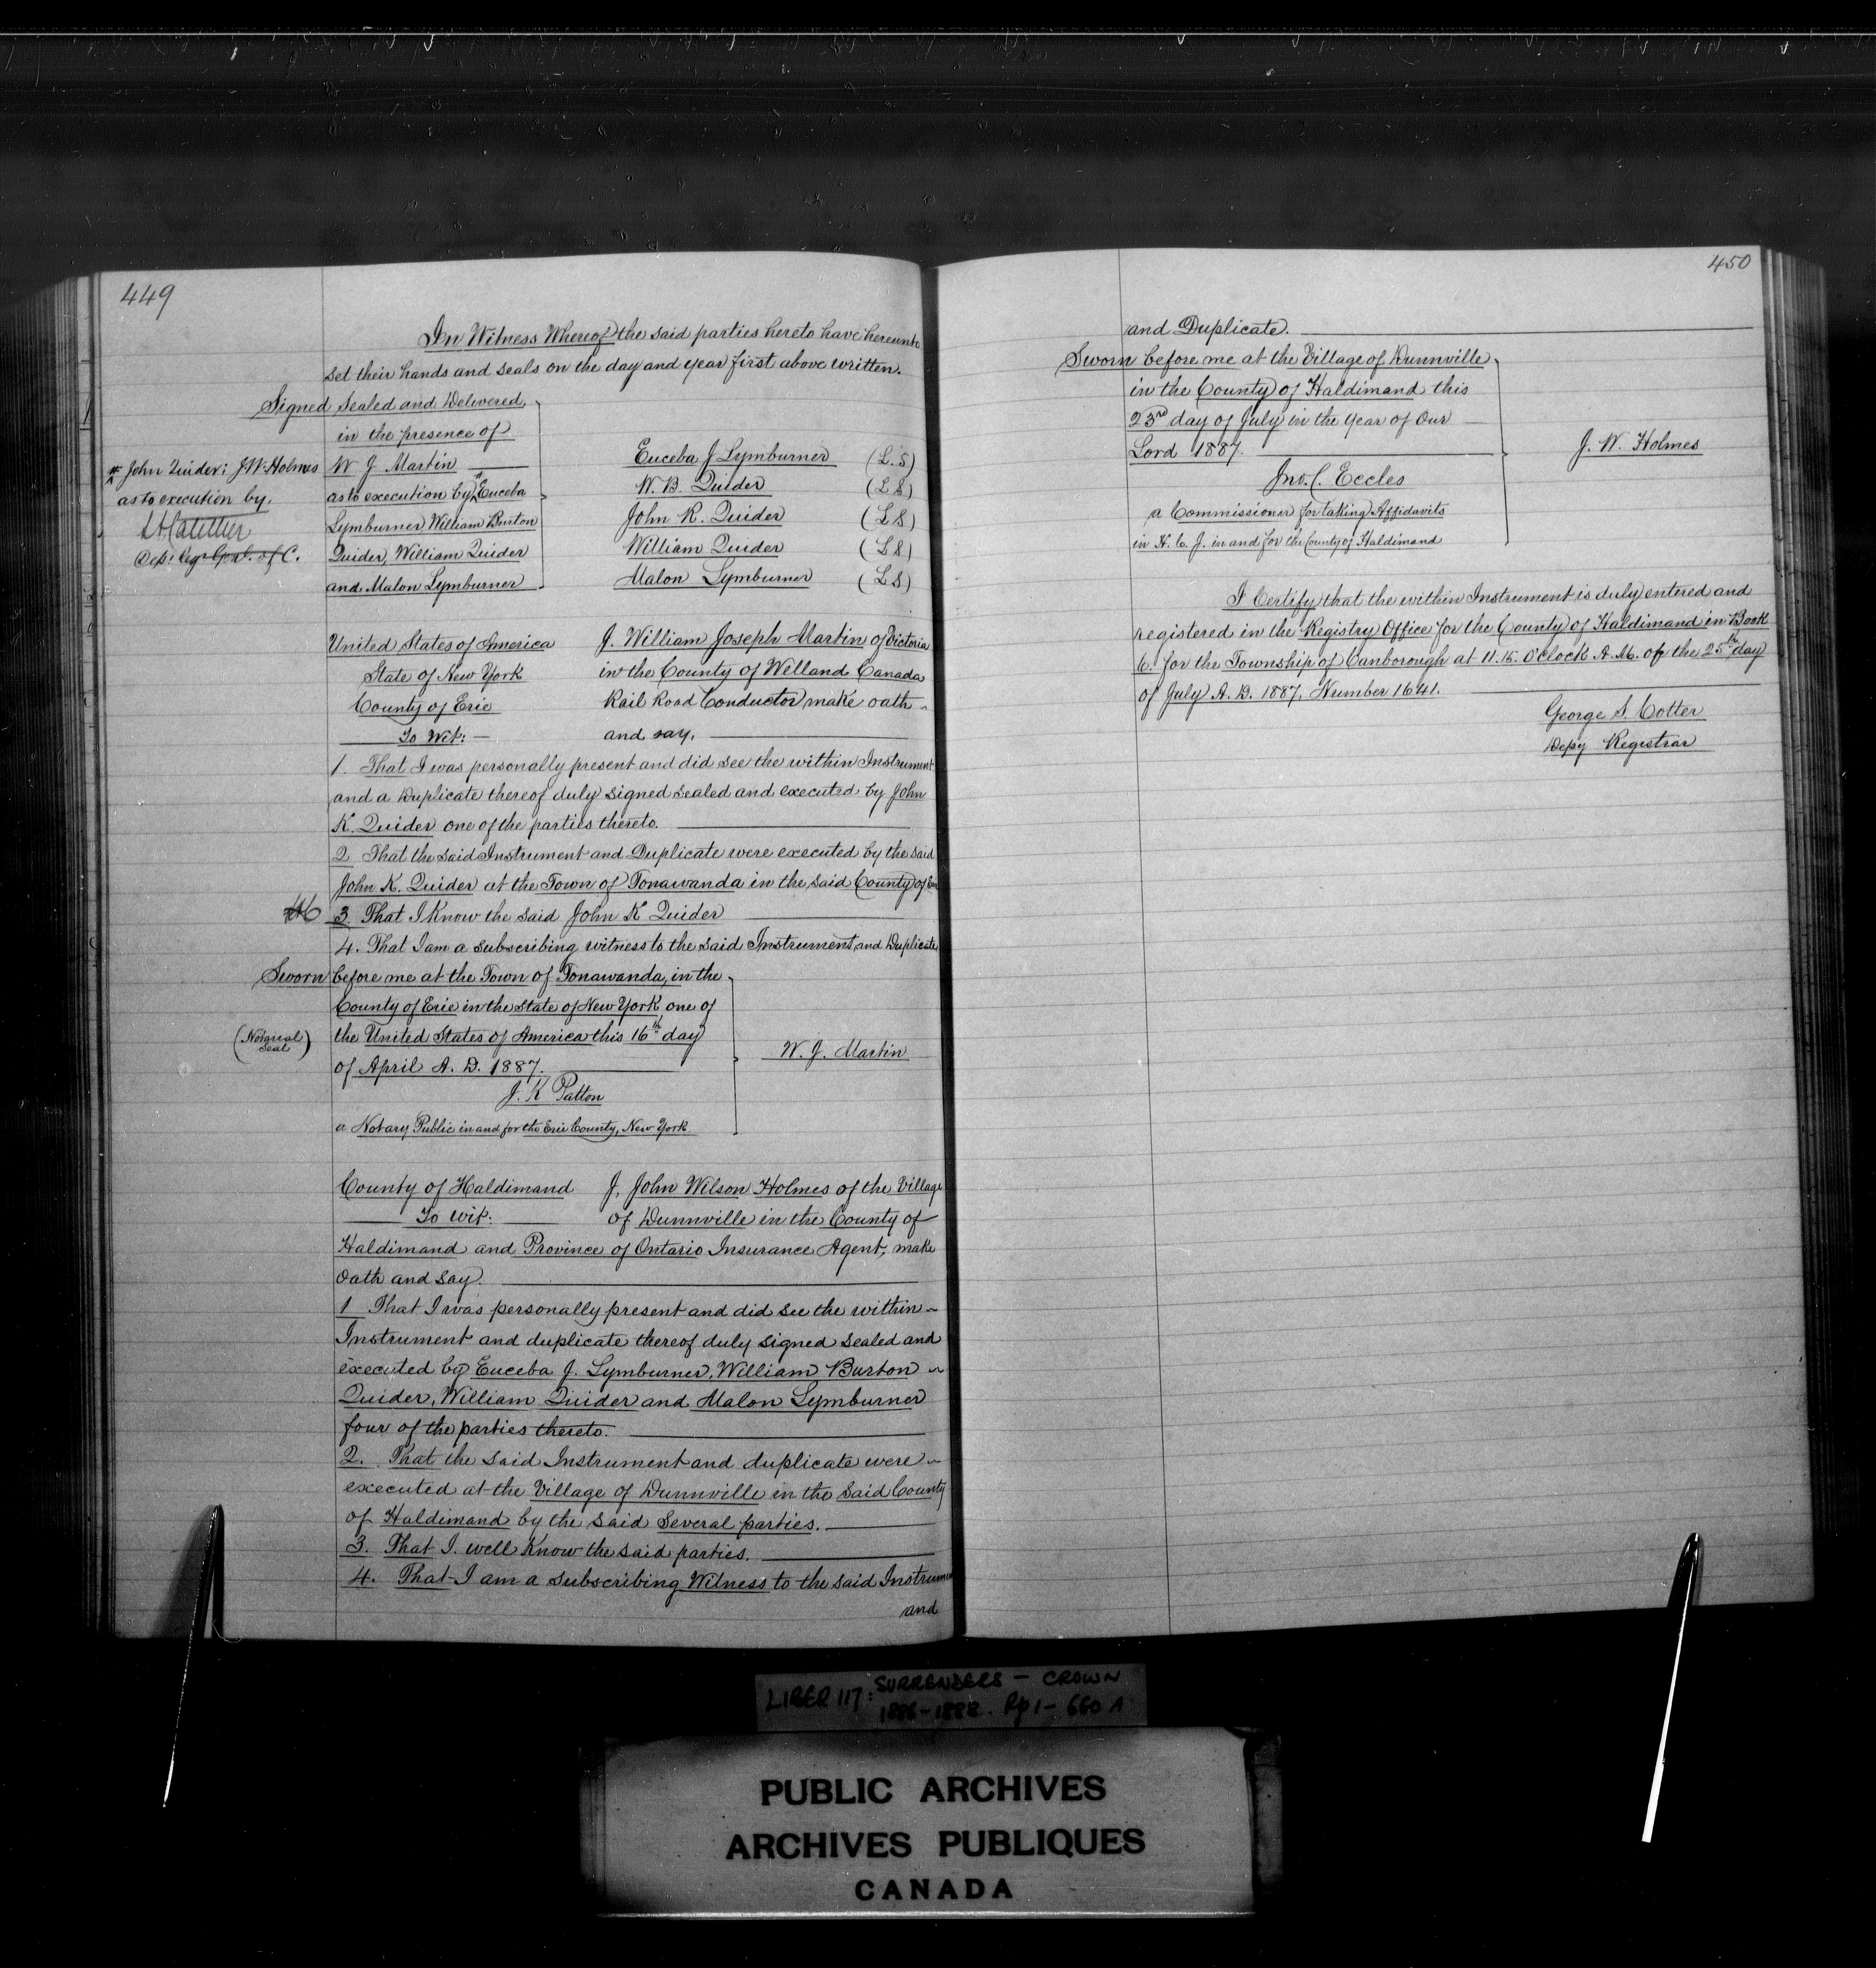 449
In Witness Whereof the said parties hereto have hereunto
set their hands and seals on the day and year first above written.
Signed Sealed and Delivered
in the presence of
W J Martin
as to execution by Euceba
Lymburner William Burton
Quider, William Quider
and Malon Lymburner
John Quider: J. W. Holmes
as to execution by.
Euceba J Lymburner (L.S)
W. B. Quider (L S)
John K. Quider (L S)
William Quider (L S)
Malon Lymburner (L S)
United States of America
State of New York
County of Erie
To Wit:
I. William Joseph Martin of Victoria
in the County of Welland Canada
Rail Road Conductor make oath
and say.
1. That I was personally present and did see the within Instrument
and a Duplicate thereof duly signed sealed and executed by John
K. Quider one of the parties thereto.
2 That the said Instrument and Duplicate were executed by the said
John K. Quider at the Town of Tonawanda in the said County of Erie
3. That I Know the said John K Quider
4. That I am a subscribing witness to the said Instrument and Duplicate
Sworn before me at the Town of Tonawanda, in the
County of Erie in the State of New York one of
the United States of America this 16th day
of April A. D. 1887.
(Notarial Seal)
J. K Patton
a Notary Public in and for the Erie County, New York
W. J. Martin
County of Haldimand
To wit:
I, John Wilson Holmes of the Village
of Dunnville in the County of
Haldimand and Province of Ontario Insurance Agent, make
Oath and say.
1 That I was personally present and did see the within
Instrument and duplicate thereof duly signed sealed and
executed by Euceba J. Lymburner, William Burton
Quider, William Quider and Malon Lymburner
four of the parties thereto.
2. That the said Instrument and duplicate were
executed at the Village of Dunnville in the said County
of Haldimand by the said Several parties.
3. That I. well Know the said parties.
4. That I am a subscribing Witness to the said Instrument
and
450
and Duplicate.
Sworn before me at the Village of Dunnville
in the County of Haldimand this
23rd day of July in the year of Our
Lord 1887.
Jno. C. Eccles
a Commissioner for taking Affidavits
in H. C. J. in and for the County of Haldimand
J. W. Holmes
I Certify that the within Instrument is duly entered and
registered in the Registry Office for the County of Haldimand in Book
6. for the Township of Canborough at 11.15. O'Clock A. M. of the 25th day
of July A. D. 1887, Number 1641.
George S. Cotter
Depy Registrar
LIBER 117: SURRENDERS - CROWN
1886-1888. Pp 1-660 A
PUBLIC ARCHIVES
ARCHIVES PUBLIQUES
CANADA